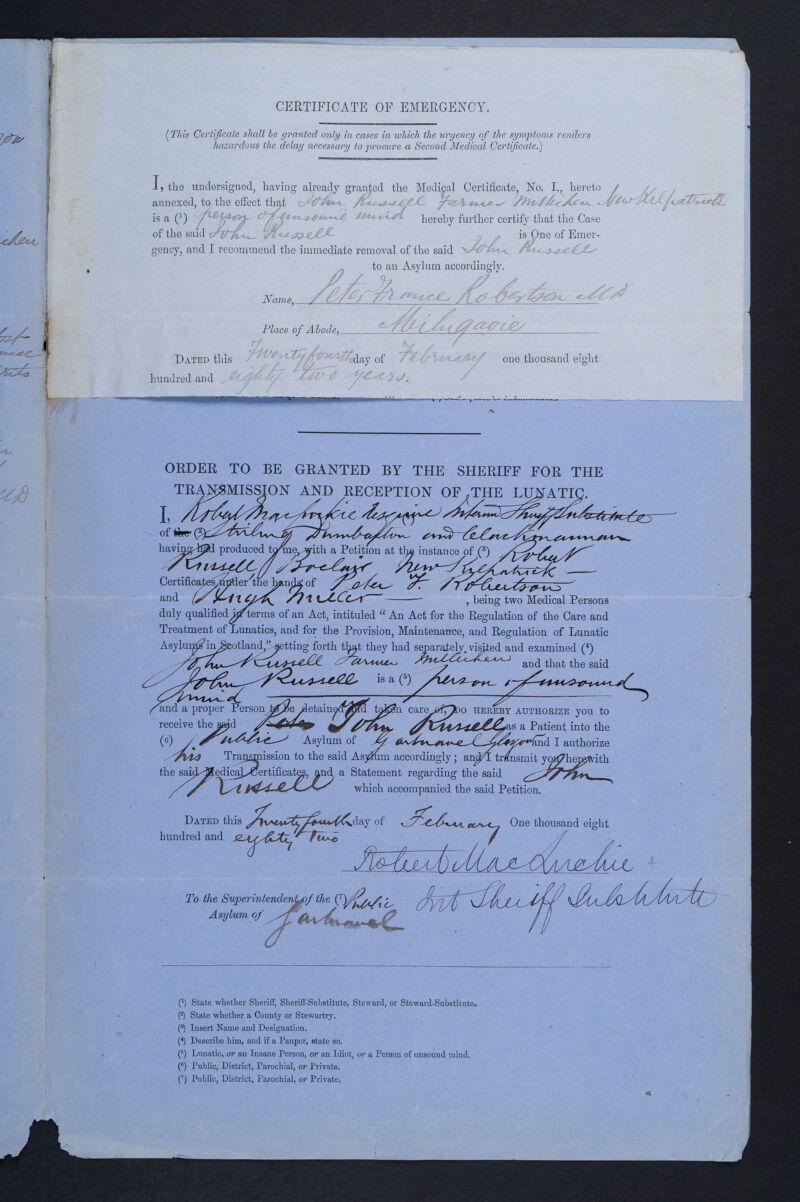 CERTIFICATE OF EMERGENCY.
(This Certificate shall be granted only in cases in which the urgency of the symptoms renders
hazardous the delay necessary to procure a Second Medical Certificate.)
I, the undersigned, having already granted the Medical Certificate, No. I., hereto
annexed, to the effect that John Russell Farmer Millichen New Kilpatrick
is a (1) person of unsound mind hereby further certify that the Case
of the said John Russell is One of Emer-
gency, and I recommend the immediate removal of the said John Russell
to an Asylum accordingly.
Name, Peter France Robertson MD
Place of Abode, Milngavie
DATED this Twenty fourth day of February one thousand eight
hundred and eighty two years.
ORDER TO BE GRANTED BY THE SHERIFF FOR THE
TRANSMISSION AND RECEPTION OF THE LUNATIC.
I, Robert Esquire Interim Sheriff Substitute
of the (2) Stirling Dumbarton and Clackmannan
having had produced to me, with a Petition at the instance of (3) Robert
Russell Boclair New Kilpatrick
Certificates under the hands of Peter F. Robertson
and Hugh Miller, being two Medical Persons
duly qualified in terms of an Act, intituled "An Act for the Regulation of the Care and
Treatment of Lunatics, and for the Provision, Maintenance, and Regulation of Lunatic
Asylums in Scotland," setting forth that they had separately visited and examined (4)
John Russell Farmer Millichen and that the said
John Russell is a (5) person of unsound
mind
and a proper Person to be detained and taken care of, DO HEREBY AUTHORIZE you to
receive the said John Russell as a Patient into the
(6) Public Asylum of Gartnavel Glasgow and I authorize
his Transmission to the said Asylum accordingly; and I transmit you herewith
the said Medical Certificates, and a Statement regarding the said John
Russell which accompanied the said Petition.
DATED this Twenty fourth day of February One thousand eight
hundred and eighty two
Robert Mac
Int Sheriff Substitute
To the Superintendent of the (7) Public
Asylum of Gartnavel
(1) State whether Sheriff, Sheriff-Substitute, Steward, or Steward-Substitute.
(2) State whether a County or Stewartry.
(3) Insert Name and Designation.
(4) Describe him, and if a Pauper, state so.
(5) Lunatic, or an Insane Person, or an Idiot, or a Person of unsound mind.
(6) Public, District, Parochial, or Private.
(7) Public, District, Parochial, or Private.